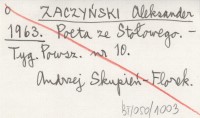 ZACZYŃSKI Aleksander
1963. Poeta ze Stołowego. -
Tyg. Powsz. nr 10.
Andrzej Skupień-Florek.
/1003